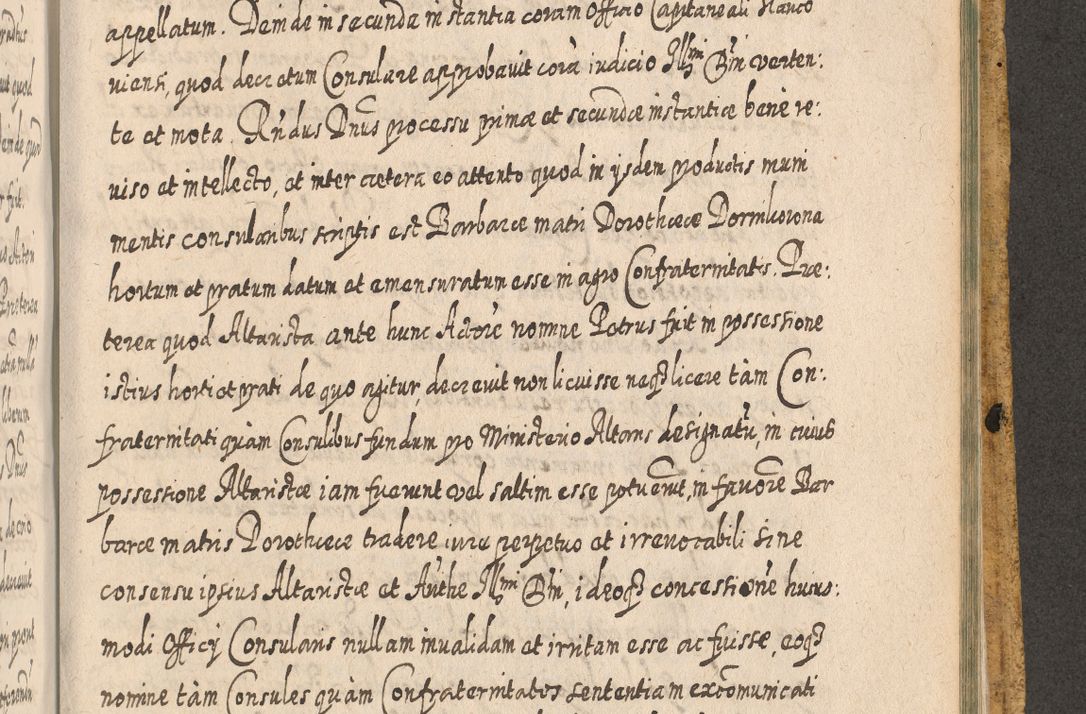 appellatum. Deinde in secunda instantia coram Officio Capitaneali Slanco
viensi, quod decretum Consulare approbavit corā iudicio Illmi Dñi verten:
te et mota. Rñdus Dnus processu primæ et secundæ instantiæ bene re:
viso et intellecto, et inter cætera eo attento quod in ijsdem productis muni
mentis consularibus scriptis est Barbaræ matri Dorotheæ Dornikorona
hortum et pratum datum et emensuratum esse in agro Confraternitatis. Præ:
terea quod Altarista ante hunc Actorē nomine Petrus fuit in possessione
istius horti et prati de quo agitur, decrevit non licuisse neqз licere tàm Con:
fraternitati quàm Consulibus fundum pro Ministerio Altaris designatū, in cuius
possessione Altaristæ iam fuerunt vel saltim esse potuerūt, in favorē Bar
baræ matris Dorotheæ tradere iure perpetuo et irrevocabili sine
consensu ipsius Altaristæ et Aũthe Illmi Dñi, ideoqз concessionē huius:
modi Officij Consularis nullam invalidam et irritam esse ac fuisse, eoqз
nomine tàm Consules quàm Confraternitatis sententiam excōmunicati